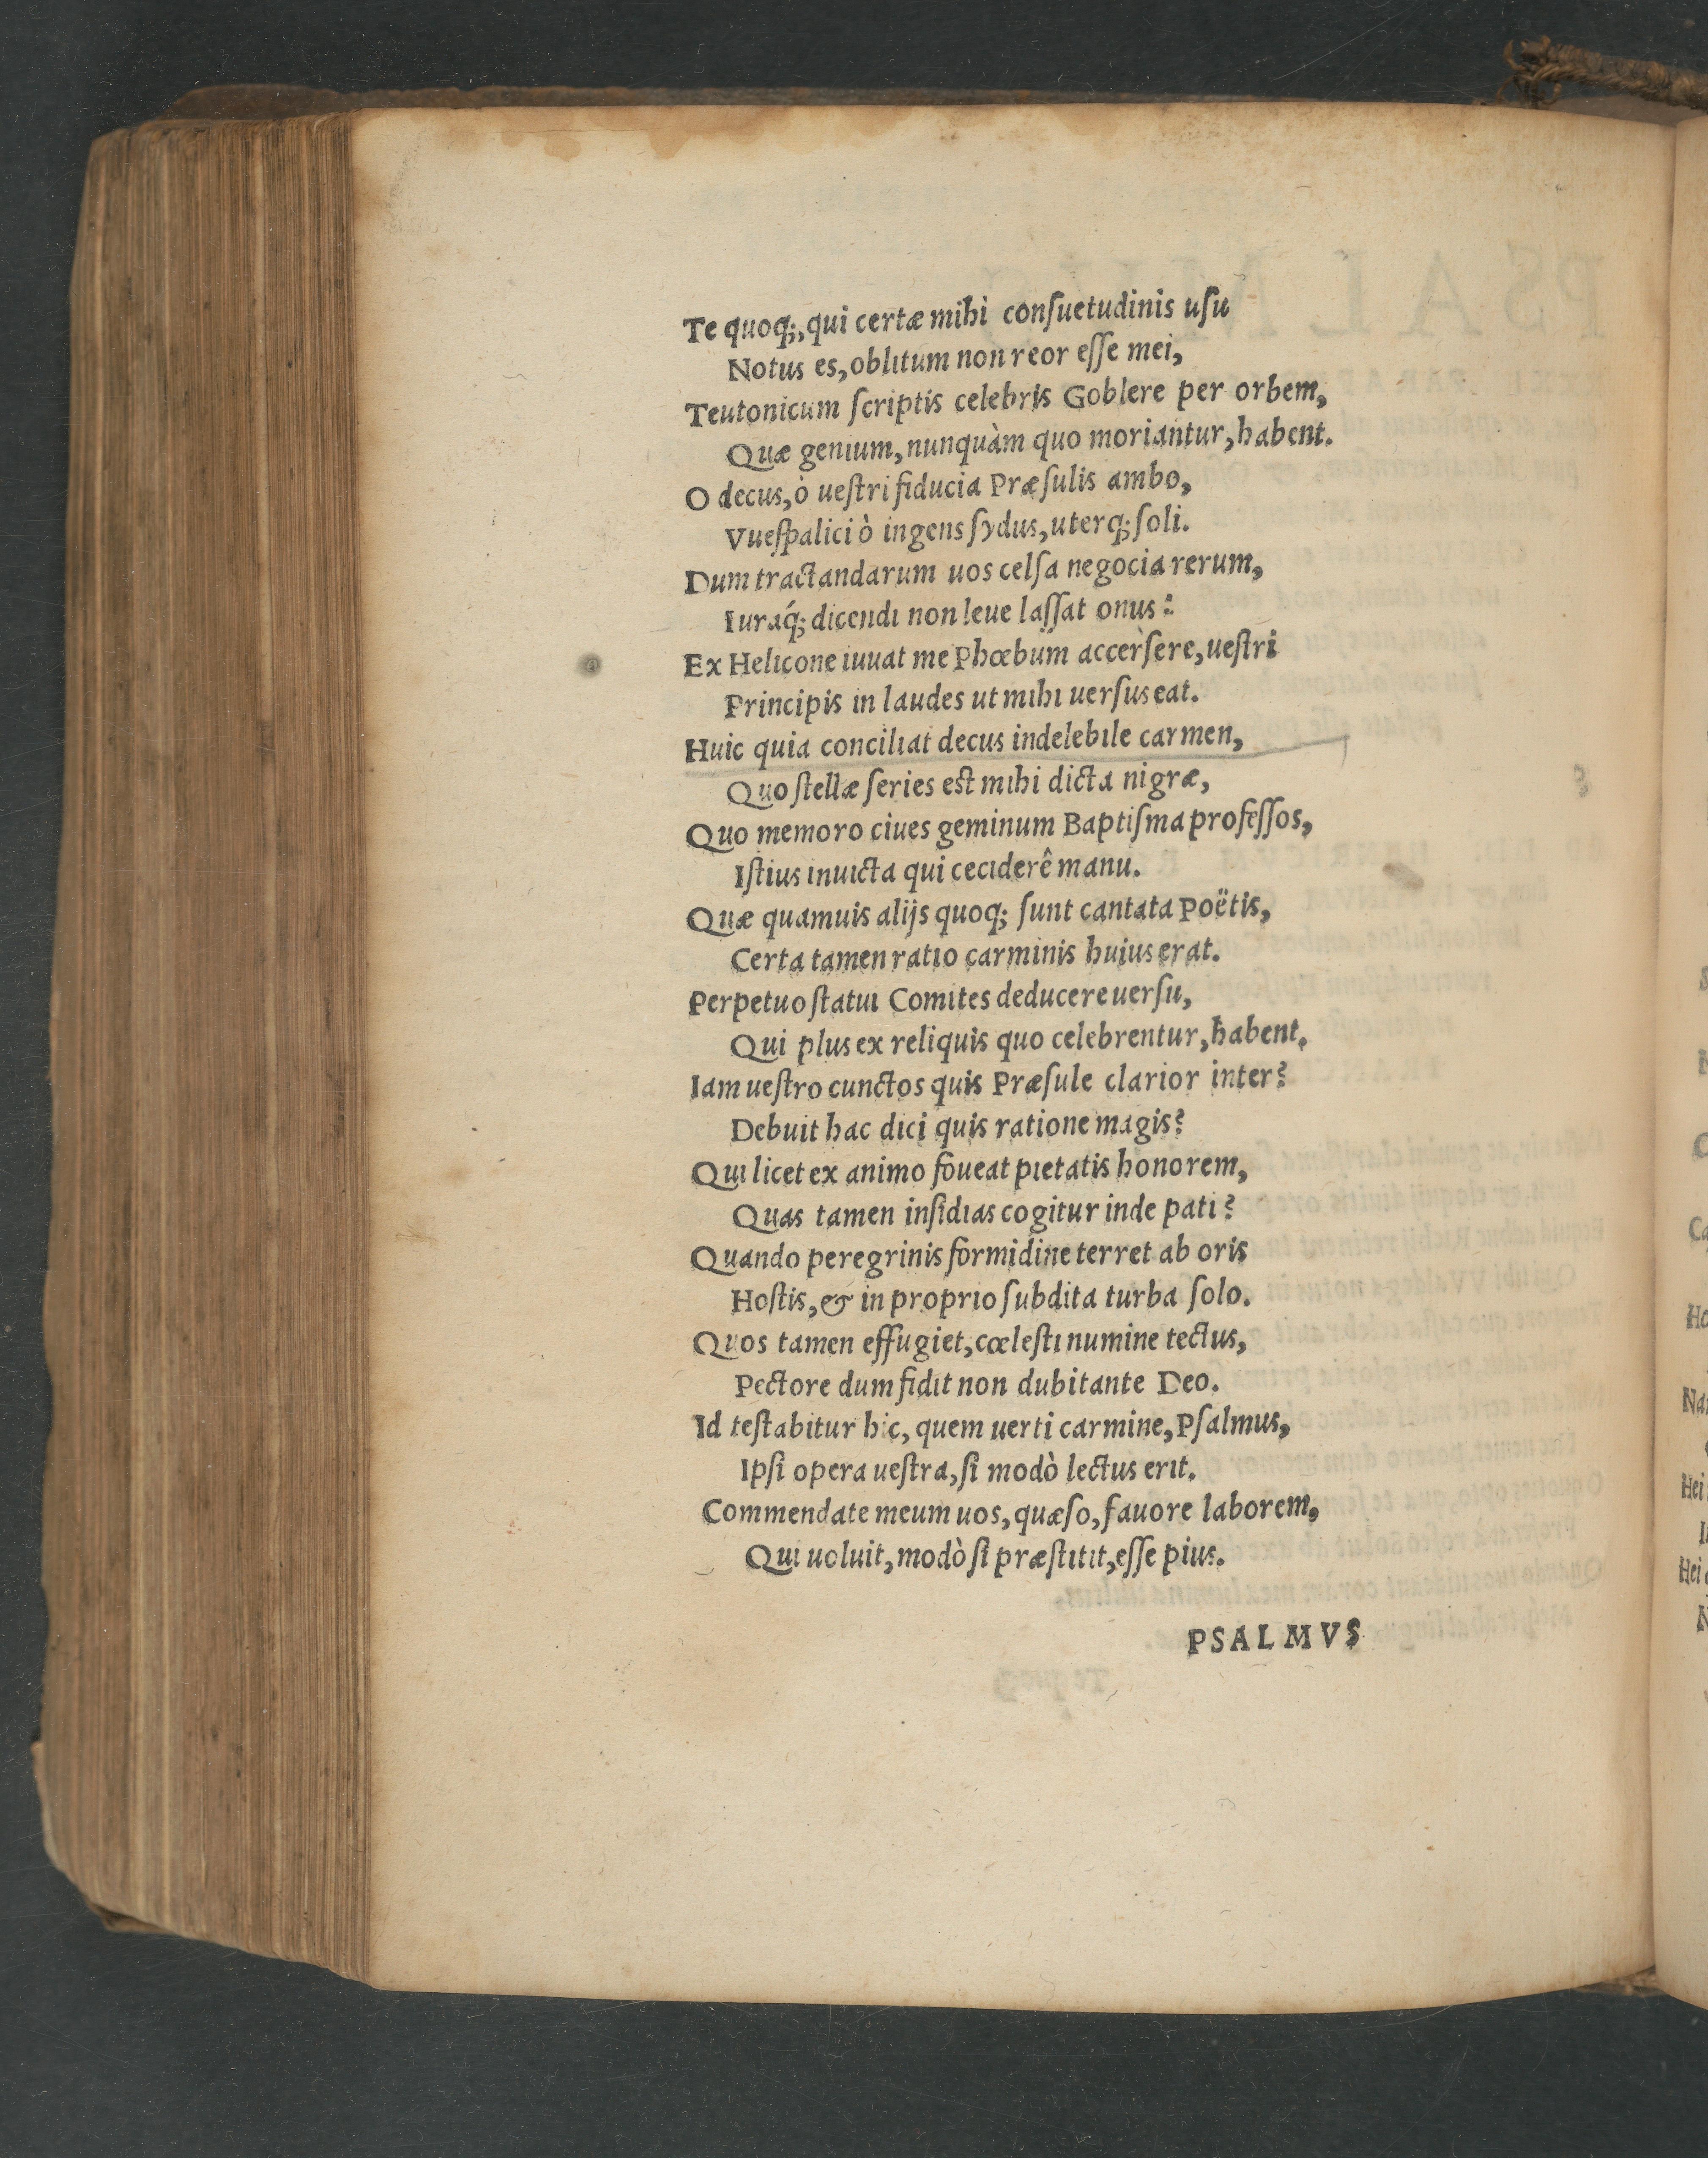 Te quoq;, qui certæ mihi conſuetudinis uſu
Notus es, oblitum non reor eſſe mei,
Teutonicum ſcriptis celebris Goblere per orbem,
Quæ genium, nunquàm quo moriantur, habent.
O decus, ò ueſtri fiducia Præſulis ambo,
Vueſpalici ò ingens ſydus, uterq; ſoli.
Dum tractandarum uos celſa negocia rerum,
Iuraq́; dicendi non leue laſſat onus:
Ex Helicone iuuat me Phœbum accerſere, ueſtri
Principis in laudes ut mihi uerſus eat.
Huic quia conciliat decus indelebile carmen,
Quo ſtellæ ſeries eſt mihi dicta nigræ,
Quo memoro ciues geminum Baptiſma profeſſos,
Iſtius inuicta qui ceciderê manu.
Quæ quamuis alijs quoq; ſunt cantata Poëtis,
Certa tamen ratio carminis huius erat.
Perpetuo ſtatui Comites deducere uerſu,
Qui plus ex reliquis quo celebrentur, habent.
Iam ueſtro cunctos quis Præſule clarior inter?
Debuit hac dici quis ratione magis?
Qui licet ex animo foueat pietatis honorem,
Quas tamen inſidias cogitur inde pati?
Quando peregrinis formidine terret ab oris
Hoſtis, & in proprio ſubdita turba ſolo.
Quos tamen effugiet, cœleſti numine tectus,
Pectore dum fidit non dubitante Deo.
Id teſtabitur hic, quem uerti carmine, Pſalmus,
Ipſi opera ueſtra, ſi modò lectus erit.
Commendate meum uos, quæſo, fauore laborem,
Qui uoluit, modò ſi præſtitit, eſſe pius.
PSALMVS